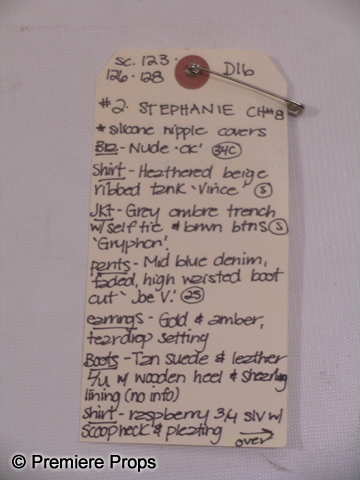 sc. 123.
126.128 D16
#2. STEPHANIE CH#8
* silicone nipple covers
Bra - Nude 'CK' 34C
Shirt - Heathered beige
ribbed tank 'Vince' S
JKT - Grey ombre trench
w/ self tie & brwn btns S
'Gryphon'
pants - Mid blue denim,
faded, high waisted boot
cut 'Joe V.' 25
earrings - Gold & amber,
teardrop setting
Boots - Tan suede & leather
L/u w wooden heel & shearling
lining (no info)
Shirt - raspberry 3/4 slv w/
scoop neck & pleating
over →
© Premiere Props